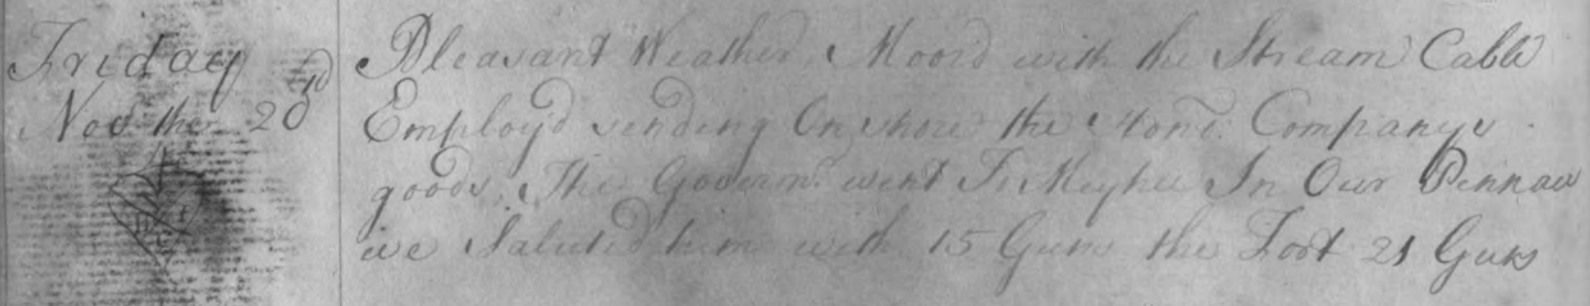 Friday
Nov the 23d
Pleasant Weather Moor'd with the Stream Cable
Employ'd sending On shore the Hond. Companys
goods, The Govern.r went To In Our Pinnace
we Saluted him with 15 Guns the Foot 21 Guns